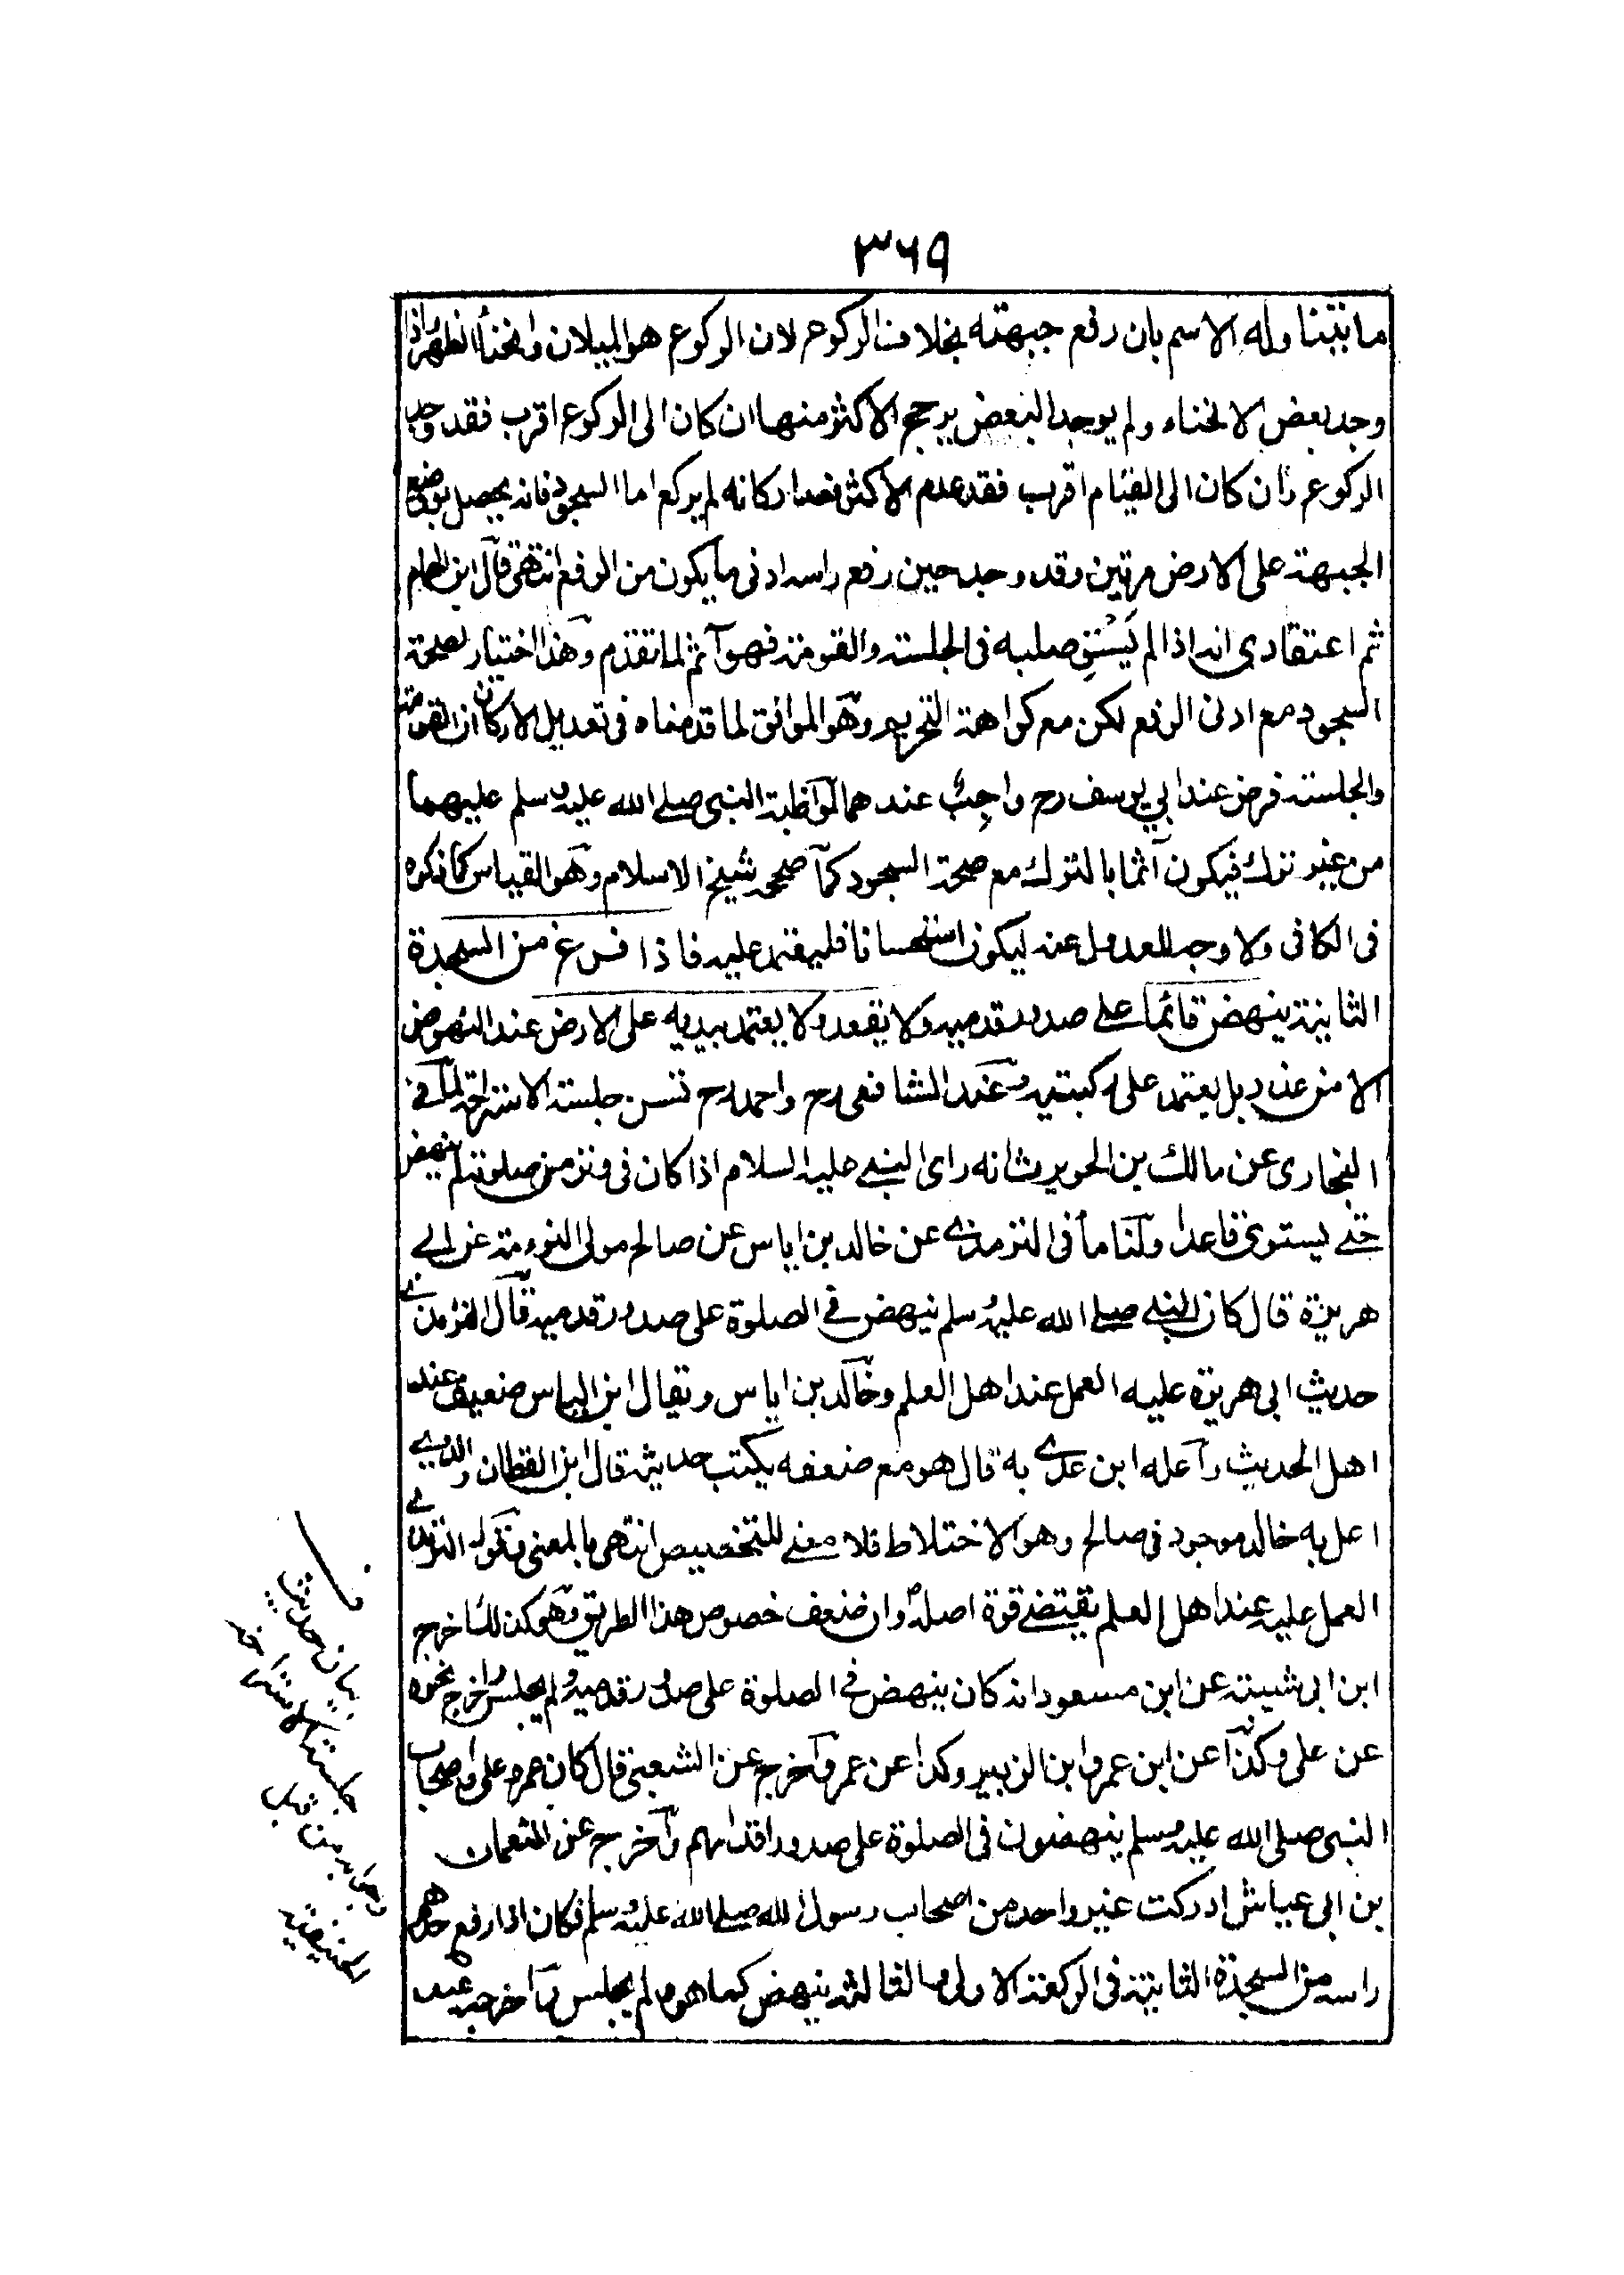 ٣٦٩
ما يتناوله الاسم بان رفع جبهته بخلاف الركوع لان الركوع هو الميلان وانحناء الظهر واذا
وجد بعض الانحناء ولم يوجد البعض يرجح الاكثر منها ان كان الى الركوع اقرب فقد وجد
الركوع وان كان الى القيام اقرب فقد عدم الاكثر فصار كانه لم يركع اما السجود فانه يحصل بوضع
الجبهة على الارض مرتين وقد وجد حين رفع راسه ادنى ما يكون من الرفع انتهى قال ابن الهمام
ثم اعتقادى انه اذا لم يستو صلبه فى الجلسة والقومة فهو آثم لما تقدم وهذا اختيار لصحة
السجود مع ادنى الرفع لكن مع كراهة التحريم وهو الموافق لما قدمناه فى تعديل الاركان ان القومة
والجلسة فرض عند ابي يوسف رح واجب عندهما لمواظبة النبى صلے الله عليه وسلم عليهما
من غير ترك فيكون آثما بالترك مع صحة السجود كما صححه شيخ الاسلام وهو القياس كما ذكره
فى الكافى ولا وجه للعدول عنه ليكون استحسانا فليعتمد عليه فاذا فرغ من السجدة
الثانية ينهض قائما على صدور قدميه ولا يقعد ولا يعتمد بيديه على الارض عند النهوض
الا من عذر بل يعتمد على ركبتيه وعند الشافعى رح واحمد رح تسن جلسة الاستراحة لما فے
البخارى عن مالك بن الحويرث انه راى النبے عليه السلام اذا كان فى وتر من صلوته لم ينهض
حتے يستوى قاعدا ولنا ما فى الترمذے عن خالد بن اياس عن صالح مولى التوءمة عن ابے
هريرة قال كان النبے صلے الله عليه وسلم ينهض فے الصلوة على صدور قدميه قال الترمذے
حديث ابى هريرة عليه العمل عند اهل العلم وخالد بن اياس ويقال ابن الياس ضعيف عند
اهل الحديث واعله ابن عدے به قال هو مع ضعفه يكتب حديثه قال ابن القطان والذے
اعل به خالد موجود فى صالح وهو الاختلاط فلا معنے للتخصيص انتهى بالمعنى وقول الترمذے
العمل عليه عند اهل العلم يقتضے قوة اصله وان ضعف خصوص هذا الطريق وهو كذلك اخرج
ابن ابى شيبة عن ابن مسعود انه كان ينهض فے الصلوة على صدور قدميه ولم يجلس واخرج نحوه
عن على وكذا عن ابن عمر وابن الزبير وكذا عن عمر واخرج عن الشعبى قال كان عمر وعلى واصحاب
النبى صلى الله عليه وسلم ينهضون فى الصلوة على صدور اقدامهم واخرج عن النعمان
بن ابى عياش ادركت غير واحد من اصحاب رسول الله صلے الله عليه وسلم فكان اذا رفع احدهم
راسه من السجدة الثانية فى الركعة الاولى والثالثة ينهض كما هو ولم يجلس واخرجه عبد
بيان حديث
جلسة الاستراحة
وجوابه من قبل
الحنيفية